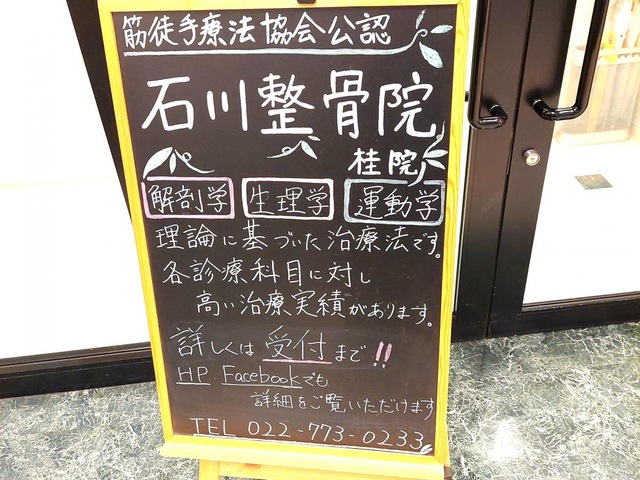 筋徒手療法協会公認
石川整骨院
桂院
解剖学 生理学 運動学
理論に基づいた治療法です。
各診療科目に対し
高い治療実績があります。
詳しくは受付まで!!
HP Facebookでも
詳細をご覧いただけます
TEL 022-773-0233